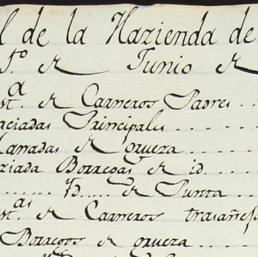 l de la Hazienda de
1.º de Junio de
st.ª de Carneros Padres
aciadas Principales
anadas de grueza
ziada Borregas de id.
Yd. de Punta
st.ª de Carneros trasañe
Borregos de grueza